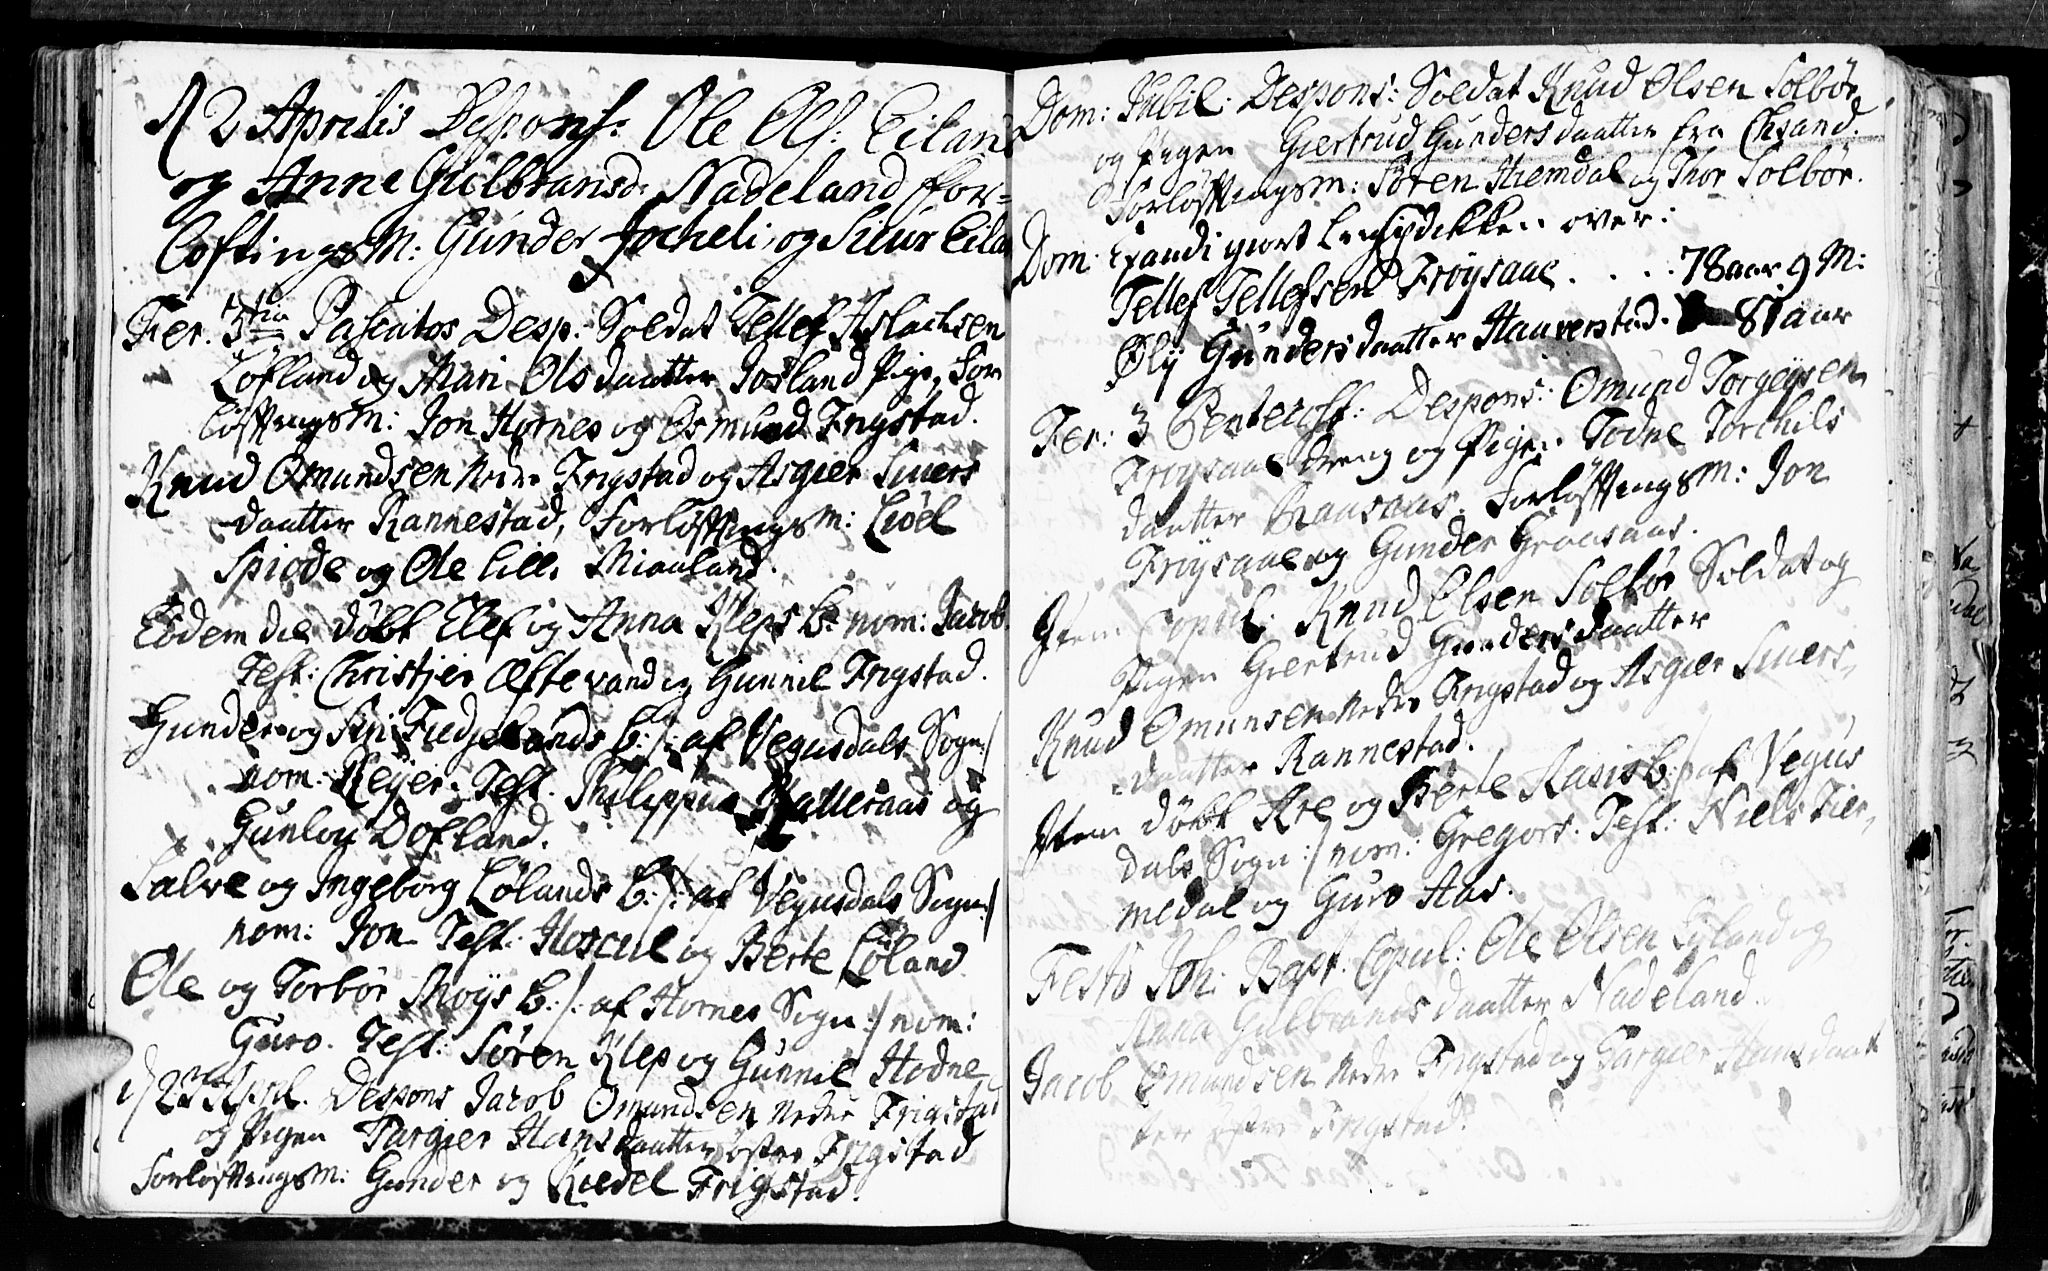 d 2 Aprilis Despons: Ole Ols: Eiland
og Anne Gulbransd: Nadeland For=
loftingsM: Gunder Jocheli og Siur Eila
Fer. 3tia Pascatos Desp: Soldat Tellef Aslachsen
Løfland og Mari Olsdaatter Josland Pige, For
løftengsM: Jon Hornes og Osmund Frigstad.
Knud Omundsen Nedre Frigstad og Asgier Siuers
daatter Rannestad, Forløftengsm: Liöel
Spiode og Ole Lille Miaaland.
Eodem die døbt Ellef og Anna Kleps b: nom: Jacob.
Test: Christjen Æftevand og Gunnil Frigstad.
Gunder og Siri Fidjelands b: /: af Vegusdals Sogn :/
nom: Reijer. Test. Philippus Halleraas og
Gunlou Dofland.
Salve og Ingeborg Lølands b: /: af Vegusdals Sogn :/
nom: Jon Test: Hoscul og Berte Løland
Ole og Torbør Moijs b: /: af Hornes Sogn :/ nom:
Guro. Test: Søren Klep og Gunnil Hodne
d 23 April. Despons Jacob Omundsen Nedre Frigstad
og Pigen Targier Hansdaatter østre Frigstad
Forløftengsm: Gunder og Kiedel Frigstad.
Dom: Jubil: Despons: Soldat Knud Olsen Solbør
og Pigen Giertrud Gundersdaatter fra Chsand.
Forløftengsm: Søren Hiemdal og Thor Solbør.
Dom: Exaudi giort Ligprediken over:
Tellef Tellefsen Frøysaae .... 78 aar 9 M:
Ølij Gundersdaatter Haaverstad. 81 aar
Fer: 3 Pentecost: Despons: Omund Torgeijsen
Froysaae dreng og Pigen Todne Torchils
daatter Graasaas. ForløftengsM: Jon
Frøysaae og Gunder Graasaas.
Item Copul: Knud Olsen Solbør Soldat og
Pigen Giertrud Gundersdaatter
Knud Omunsen Nedre Frigstad og Asgier Siuers,
daatter Rannestad.
Item døbt Are og Berte Aasis b: /: af Vegus
dals Sogn :/ nom: Gregors. Test: Niels Fier,
medal og Guro Aas.
Festo Joh: Bapt: Copul: Ole Olsen Eyland og
Anna Gulbrandsdaatter Nadeland.
Jacob Omundsen Nedre Frigstad og Targier Hansdaat
ter Frigstad.